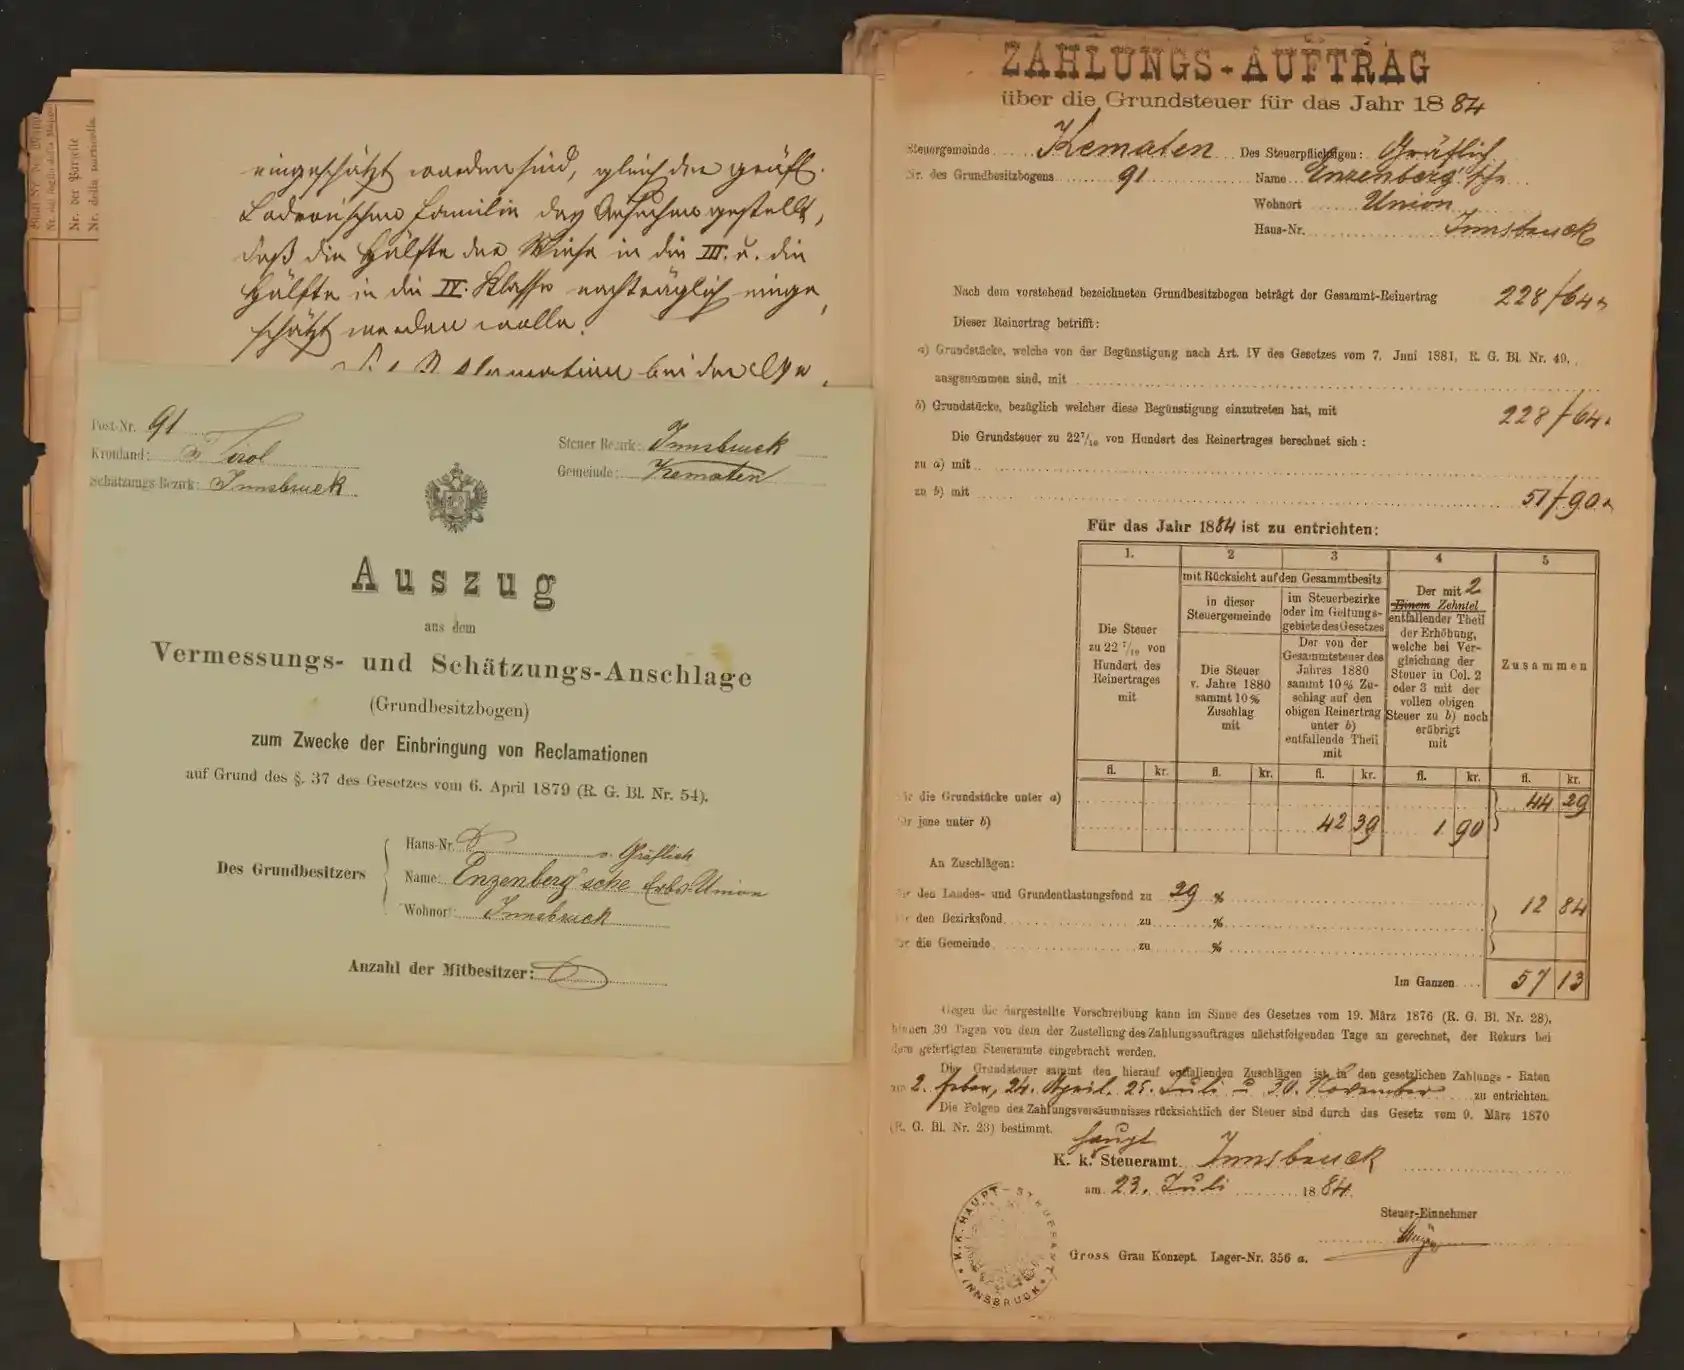 Nr. der Parzelle
Nr. della particella
eingeschätzt worden sind, gleich der gräfl.
Lodron'schen Familie das Ansuchen gestellt,
daß die Hälfte der Wiese in die III. u. die
Hälfte in die IV. Klasse nachträglich einge
schätzt werden wolle.
bei der
Post-Nr. 91
Kronland: Tirol
Schätzungs-Bezirk: Innsbruck
Steuer Bezirk: Innsbruck
Gemeinde: Kematen
Auszug
aus dem
Vermessungs- und Schätzungs-Anschlage
(Grundbesitzbogen)
zum Zwecke der Einbringung von Reclamationen
auf Grund des §. 37 des Gesetzes vom 6. April 1879 (R. G. Bl. Nr. 54).
Des Grundbesitzers
Haus-Nr.
Gräflich
Name: Enzenberg'sche Erbs Union
Wohnort: Innsbruck
Anzahl der Mitbesitzer:
ZAHLUNGS-AUFTRAG
über die Grundsteuer für das Jahr 1884
Steuergemeinde Kematen
Nr. des Grundbesitzbogens 91
Des Steuerpflichtigen: Gräflich
Name Enzenberg'sche
Wohnort Union
Haus-Nr. Innsbruck
Nach dem vorstehend bezeichneten Grundbesitzbogen beträgt der Gesammt-Reinertrag 228 f 64
Dieser Reinertrag betrifft:
a) Grundstücke, welche von der Begünstigung nach Art. IV des Gesetzes vom 7. Juni 1881, R. G. Bl. Nr. 49,
ausgenommen sind, mit
b) Grundstücke, bezüglich welcher diese Begünstigung einzutreten hat, mit 228 f 64
Die Grundsteuer zu 22 7/10 von Hundert des Reinertrages berechnet sich:
zu a) mit
zu b) mit 51 f 90
Für das Jahr 1884 ist zu entrichten:
1. 2 3 4 5
Die Steuer
zu 22 7/10 von
Hundert des
Reinertrages
mit
mit Rücksicht auf den Gesammtbesitz
in dieser
Steuergemeinde
Die Steuer
v. Jahre 1880
sammt 10%
Zuschlag
mit
im Steuerbezirke
oder im Geltungs-
gebiete des Gesetzes
Der von der
Gesammtsteuer des
Jahres 1880
sammt 10% Zu-
schlag auf den
obigen Reinertrag
unter b)
entfallende Theil
mit
Der mit 2
Einem Zehntel
entfallender Theil
der Erhöhung,
welche bei Ver-
gleichung der
Steuer in Col. 2
oder 3 mit der
vollen obigen
Steuer zu b) noch
erübrigt
mit
Zusammen
fl. kr. fl. kr. fl. kr. fl. kr. fl. kr.
die Grundstücke unter a) 44 29
jene unter b) 42 39 1 90
An Zuschlägen:
den Landes- und Grundentlastungsfond zu 29 %
12 84
den Bezirksfond zu %
die Gemeinde zu %
Im Ganzen 57 13
Gegen die dargestellte Vorschreibung kann im Sinne des Gesetzes vom 19. März 1876 (R. G. Bl. Nr. 28),
binnen 30 Tagen von dem der Zustellung des Zahlungsauftrages nächstfolgenden Tage an gerechnet, der Rekurs bei
dem gefertigten Steueramte eingebracht werden.
Die Grundsteuer sammt den hierauf entfallenden Zuschlägen ist in den gesetzlichen Zahlungs-Raten
am 2. Feber, 24. April, 25. Juli u 30. November zu entrichten.
Die Folgen des Zahlungsversäumnisses rücksichtlich der Steuer sind durch das Gesetz vom 9. März 1870
(R. G. Bl. Nr. 23) bestimmt.
Haupt
K. k. Steueramt Innsbruck
am 23. Juli 1884
Steuer-Einnehmer
Gross Grau Konzept. Lager-Nr. 356 a.
K. K. HAUPT-STEUERAMT
INNSBRUCK